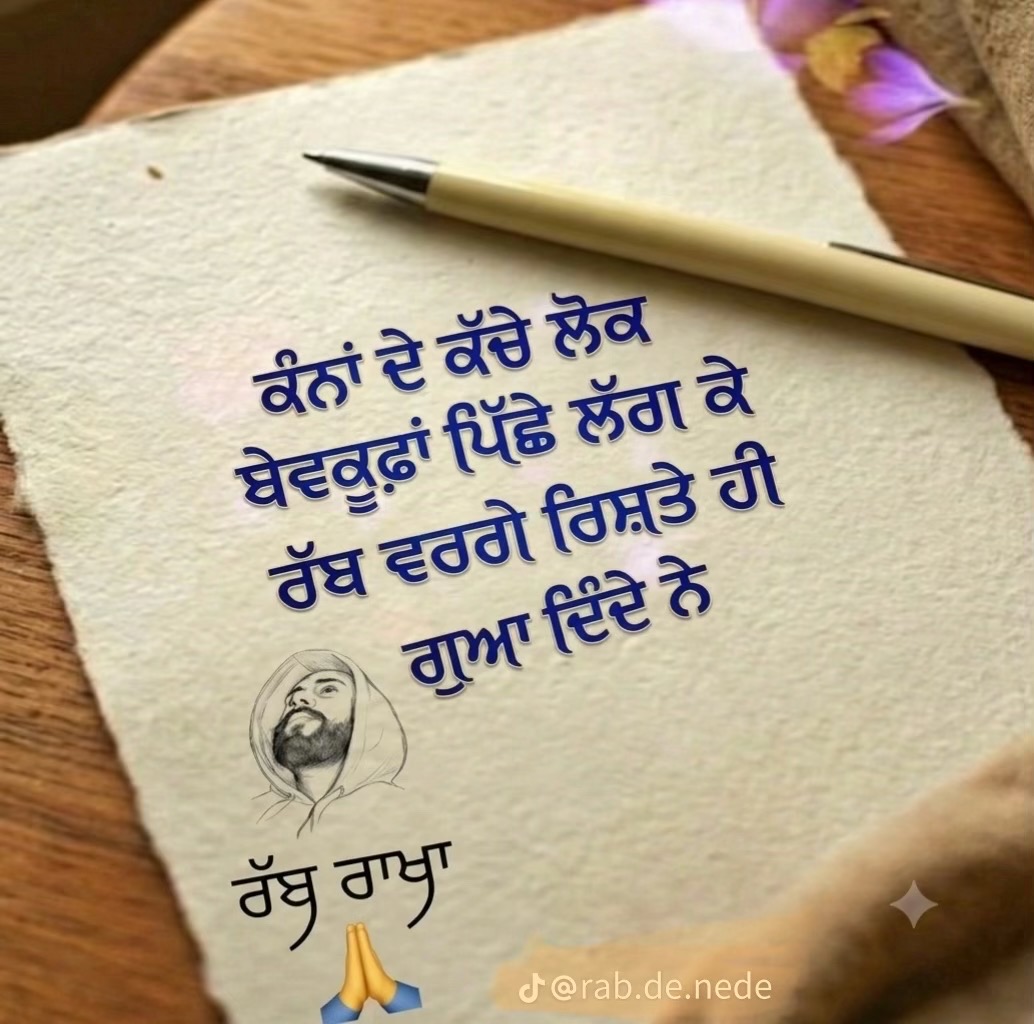 ਕੰਨਾਂ ਦੇ ਕੱਚੇ ਲੋਕ
ਬੇਵਕੂਫ਼ਾਂ ਪਿੱਛੇ ਲੱਗ ਕੇ
ਰੱਬ ਵਰਗੇ ਰਿਸ਼ਤੇ ਹੀ
ਗੁਆ ਦਿੰਦੇ ਨੇ
ਰੱਬ ਰਾਖਾ
@rab.de.nede